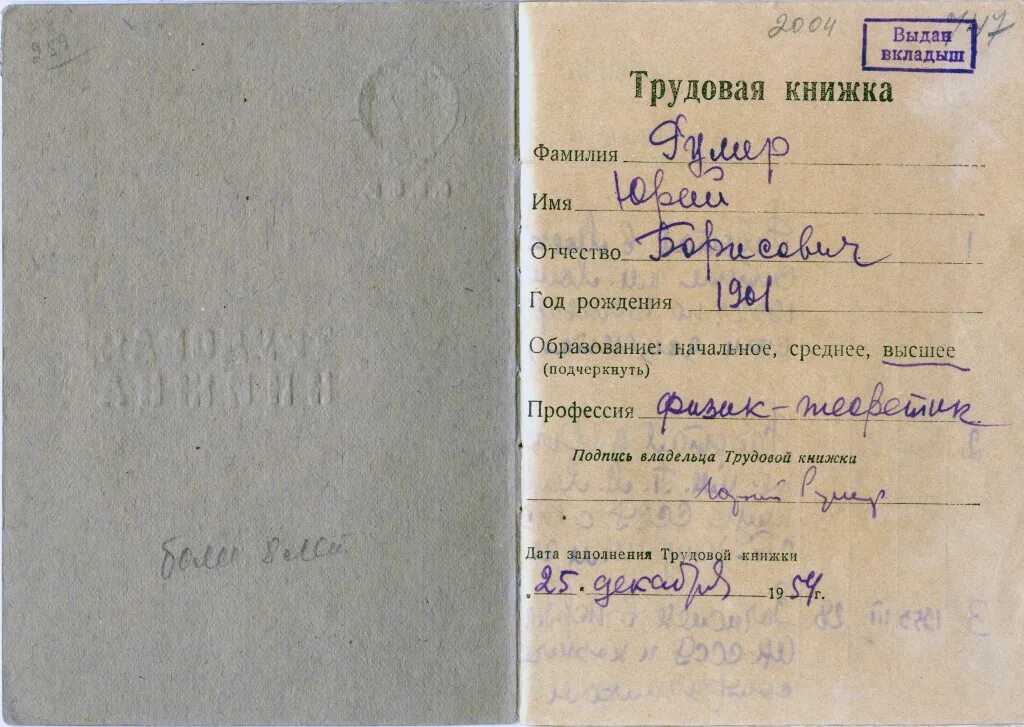 2004
Выдан
вкладыш
Трудовая книжка
Фамилия Румер
Имя Юрий
Отчество Борисович
Год рождения 1901
Образование: начальное, среднее, высшее
(подчеркнуть)
Профессия физик-теоретик
Подпись владельца Трудовой книжки
Юрий Румер
Дата заполнения Трудовой книжки
25. декабря 1954 г.